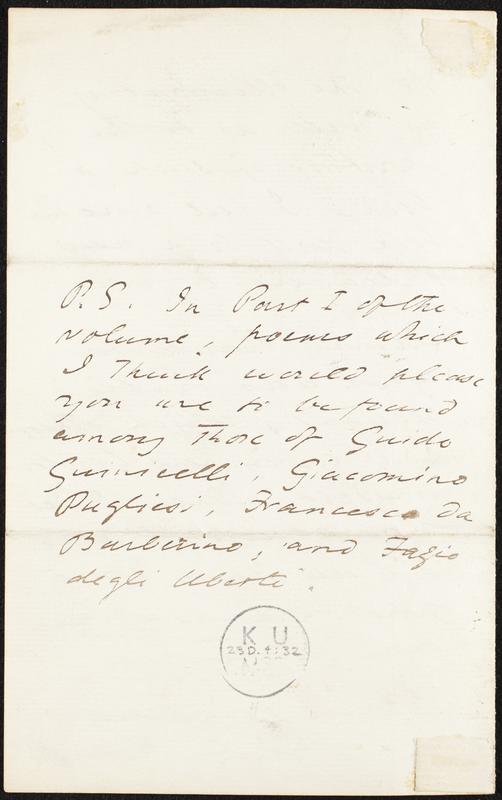 P.S. In Part I of the
volume, poems which
I think would please
you are to be found
among those of Guido
Guinicelli, Giacomino
Pugliesi, Francesco da
Barberino, and Fazio
degli Uberti.
K U
23D.4:32